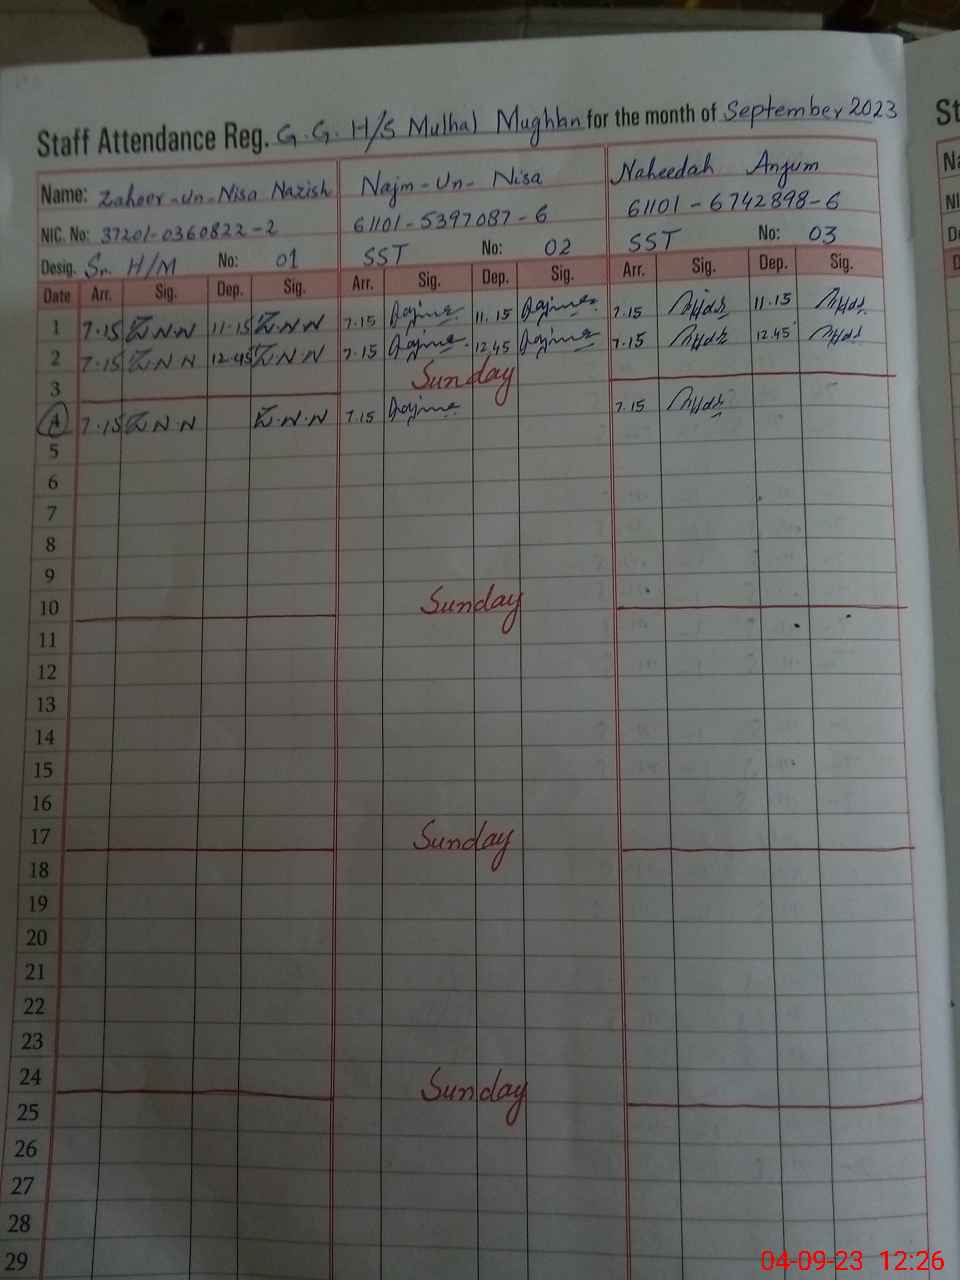 Staff Attendance Reg. G.G. H/S Mulhal Mughlan for the month of September 2023
Name: Zaheer-un-Nisa Nazish Najm-Un-Nisa Naheedah Anjum
NIC. No: 37201-0360822-2 61101-5397087-6 61101-6742898-6
Desig. Sn. H/M No: 01 SST No: 02 SST No: 03
Date Arr. Sig. Dep. Sig. Arr. Sig. Dep. Sig. Arr. Sig. Dep. Sig.
1 7.15 Z.N.N 11.15 Z.N.N 7.15 11.15 7.15 11.15
2 7.15 Z.N.N 12.45 Z.N.N 7.15 12.45 7.15 12.45
3 Sunday
4 7.15 Z.N.N Z.N.N 7.15 7.15
5
6
7
8
9
10 Sunday
11
12
13
14
15
16
17 Sunday
18
19
20
21
22
23
24 Sunday
25
26
27
28
29
St
Na
NI
De
D
04-09-23 12:26